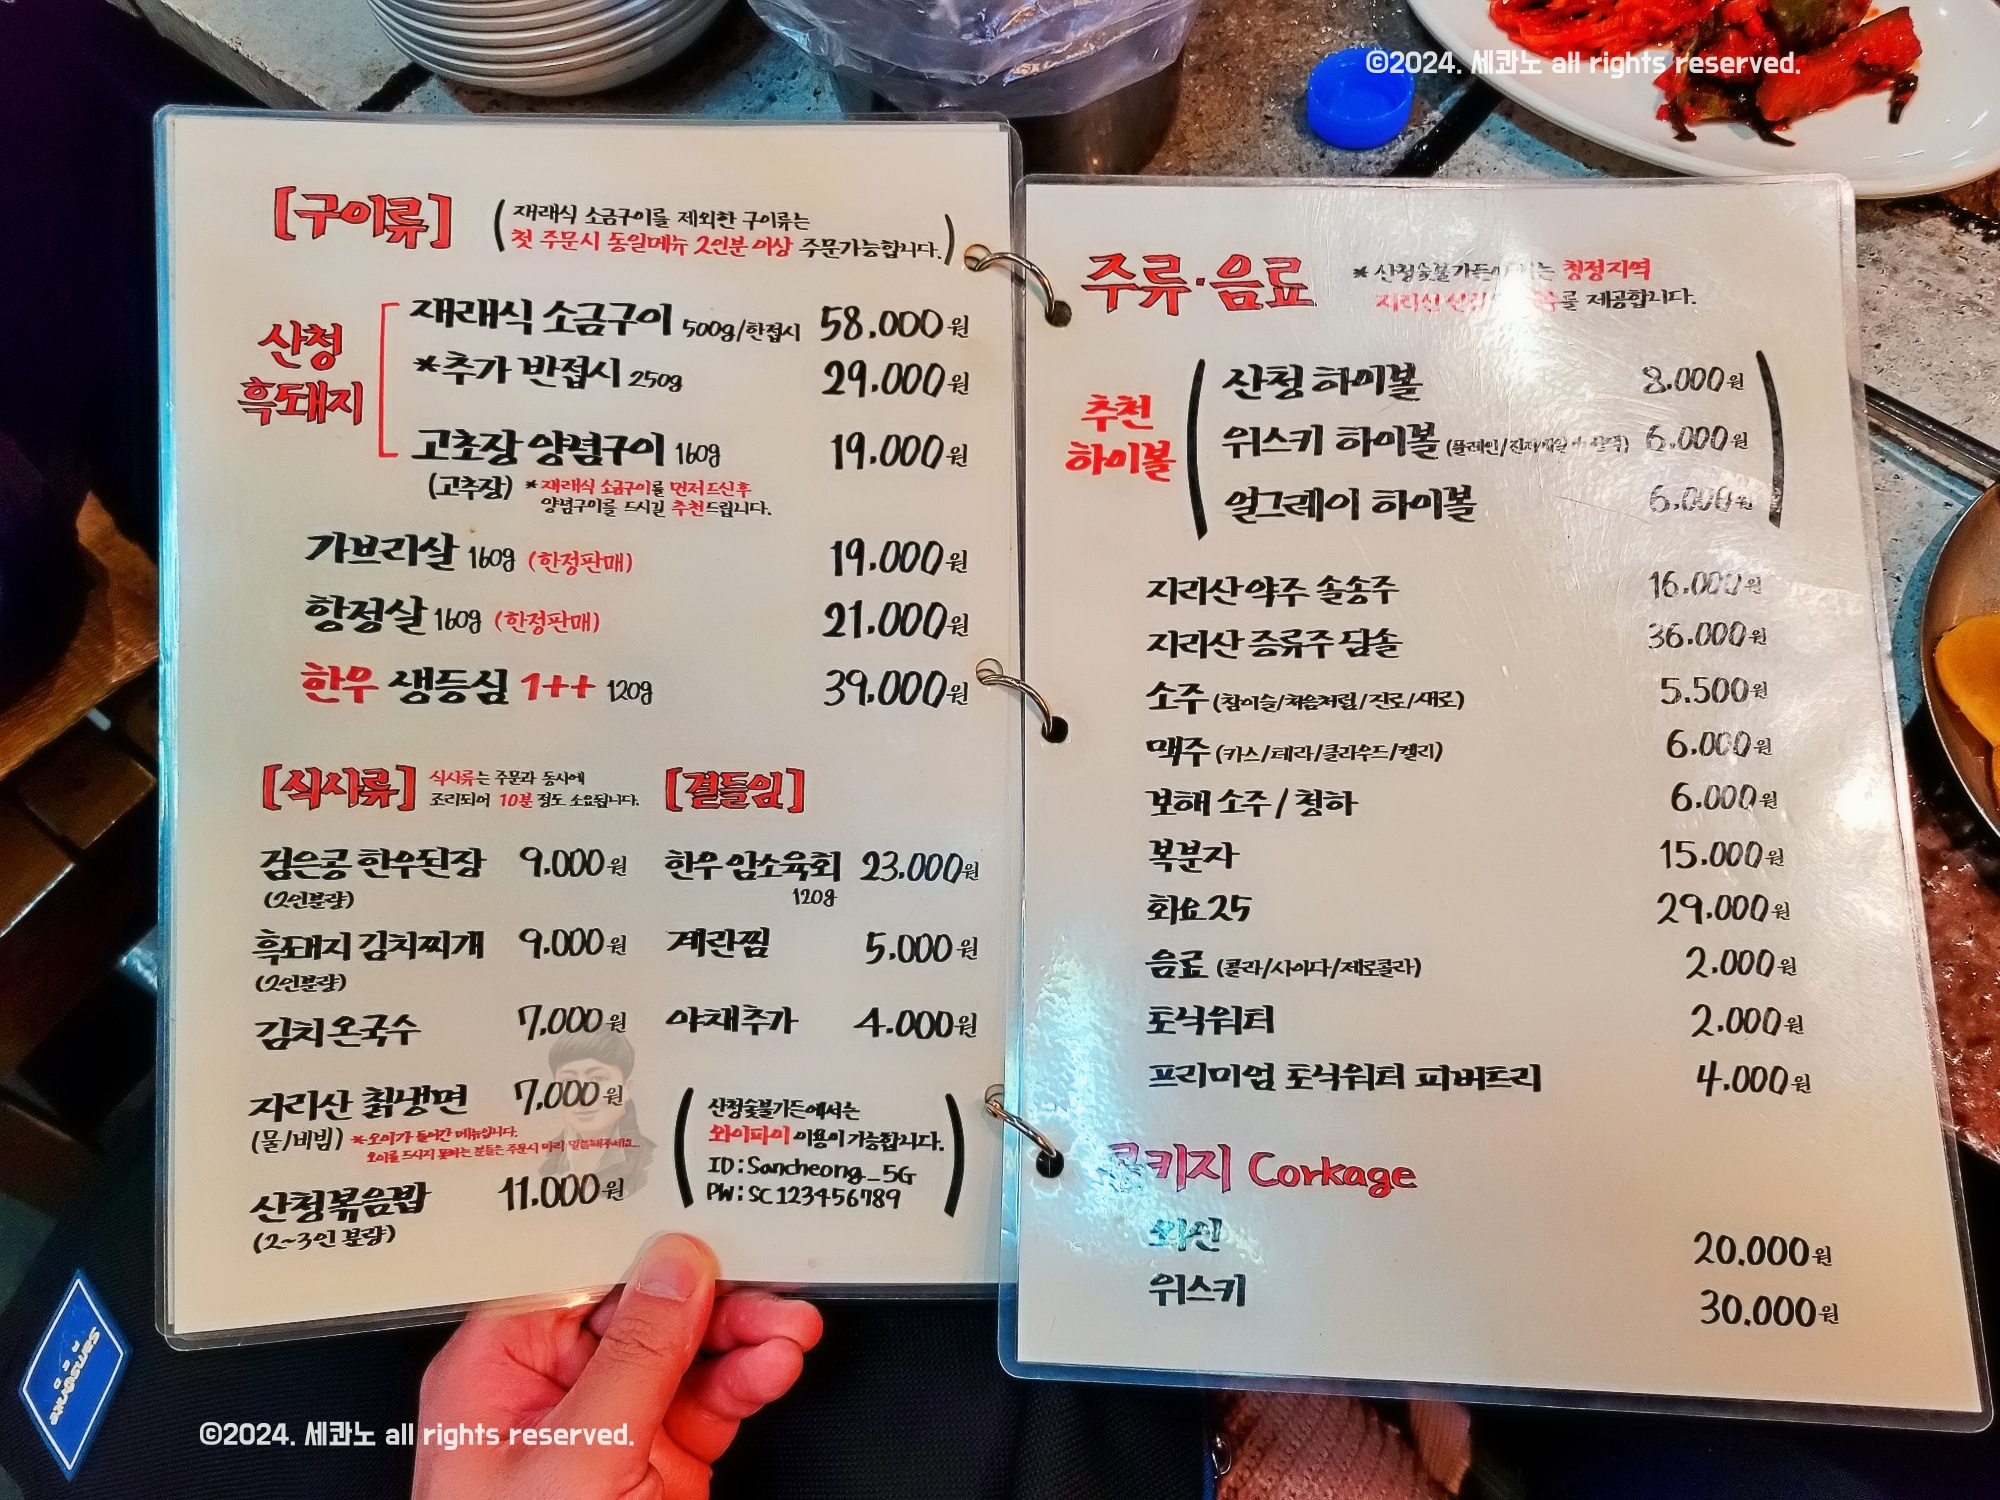 ©2024. 세콰노 all rights reserved.
[구이류]
(재래식 소금구이를 제외한 구이류는
첫 주문시 동일메뉴 2인분 이상 주문가능합니다.)
산청
흑돼지
재래식 소금구이 500g/한접시 58.000원
*추가 반접시 250g 29.000원
고초장 양념구이 160g 19.000원
(고추장) *재래식 소금구이를 먼저 드신후
양념구이를 드시길 추천드립니다.
가브리살 160g (한정판매) 19.000원
항정살 160g (한정판매) 21.000원
한우 생등심 1++ 120g 39.000원
[식사류] 식사류는 주문과 동시에
조리되어 10분 정도 소요됩니다.
검은콩 한우된장 9.000원
(2인분량)
흑돼지 김치찌개 9.000원
(2인분량)
김치온국수 7.000원
지리산 칡냉면 7.000원
(물/비빔) *오이가 들어간 메뉴입니다.
오이를 드시지 못하는 분들은 주문시 미리 말씀해주세요.
산청볶음밥 11.000원
(2~3인 분량)
[곁들임]
한우 암소육회 23.000원
120g
계란찜 5.000원
야채추가 4.000원
(산청숯불가든에서는
와이파이 이용이 가능합니다.
ID:Sancheong_5G
PW:SC123456789)
주류·음료
* 산청숯불가든 청정지역
지리산 제공합니다.
추천
하이볼
산청 하이볼 8.000원
위스키 하이볼 6.000원
얼그레이 하이볼 6.000원
지리산 약주 솔송주 16.000원
지리산 증류주 담솔 36.000원
소주 (참이슬/처음처럼/진로/새로) 5.500원
맥주 (카스/테라/클라우드/켈리) 6.000원
보해 소주 / 청하 6.000원
복분자 15.000원
화요25 29.000원
음료 (콜라/사이다/제로콜라) 2.000원
토닉워터 2.000원
프리미엄 토닉워터 피버트리 4.000원
콜키지 Corkage
와인 20.000원
위스키 30.000원
©2024. 세콰노 all rights reserved.